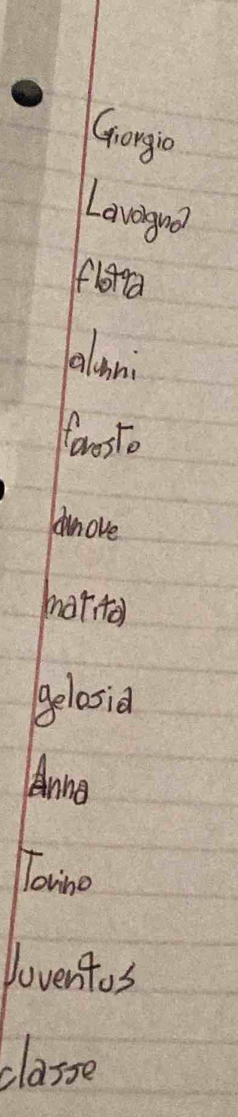 Giorgio
Lavagna
flotta
alunni
foresto
amore
matita
gelosia
Anna
Torino
Juventus
classe